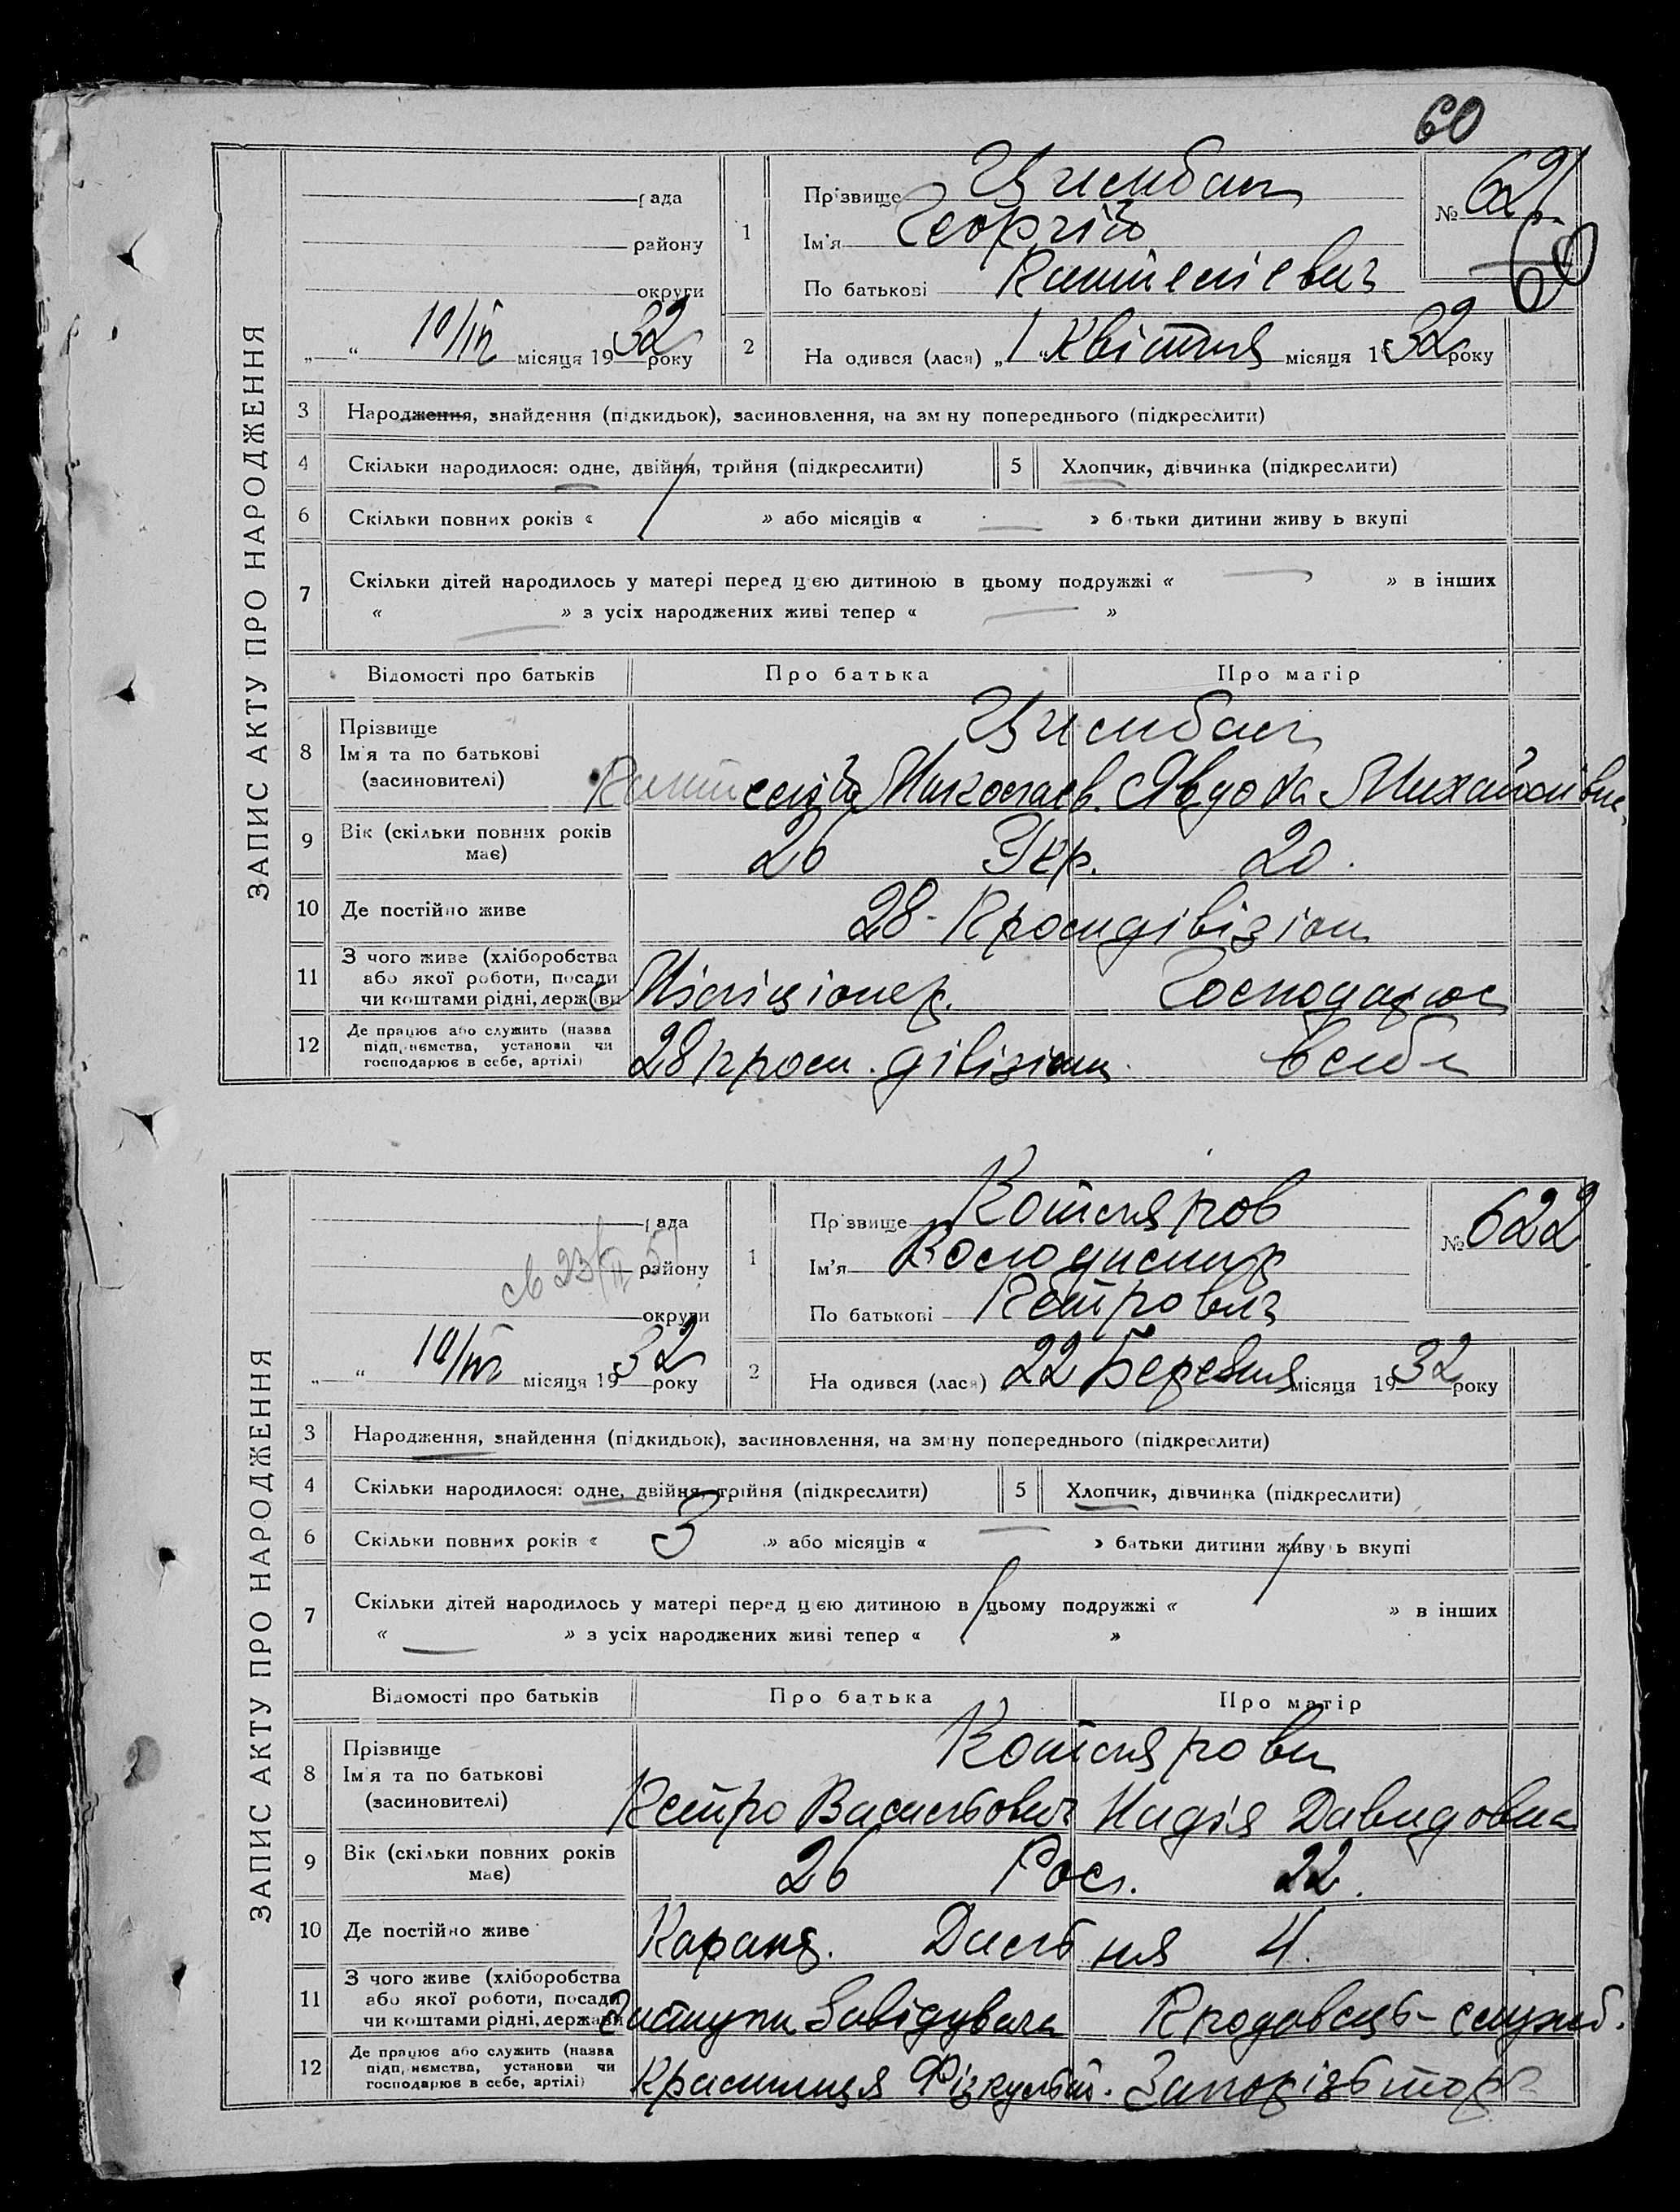 60
ЗАПИС АКТУ ПРО НАРОДЖЕННЯ
рада
району
округи
10/IV місяця 1932 року
1
Прізвище Цимбал
Ім'я Георгій
По батькові
№ 621
60
2
Народився (лася) „1" Квітня місяця 1932 року
3 Народження, знайдення (підкидьок), засиновлення, на зміну попереднього (підкреслити)
4 Скільки народилося: одне, двійня, трійня (підкреслити) 5 Хлопчик, дівчинка (підкреслити)
6 Скільки повних років « / » або місяців « — » батьки дитини живуть вкупі
7 Скільки дітей народилось у матері перед цією дитиною в цьому подружжі « — » в інших
« — » з усіх народжених живі тепер « — »
Відомості про батьків Про батька Про матір
8 Прізвище Цимбал
Ім'я та по батькові
(засиновителі) Миколаєв. Явдоха Михайлівна
9 Вік (скільки повних років має) 26 Укр. 20.
10 Де постійно живе 28 - Промдівізіон
11 З чого живе (хліборобства або якої роботи, посади чи коштами рідні, держави Міліціонер. Господарює
12 Де працює або служить (назва підприємства, установи чи господарює в себе, артілі) 28 пром. дівізіон в себе
ЗАПИС АКТУ ПРО НАРОДЖЕННЯ
рада
св 23/II 51
району
округи
10/IV місяця 1932 року
1
Прізвище Котляров
Ім'я Володимир
По батькові Петрович
№ 622
2
Народився (лася) 22 Березня місяця 1932 року
3 Народження, знайдення (підкидьок), засиновлення, на зміну попереднього (підкреслити)
4 Скільки народилося: одне, двійня, трійня (підкреслити) 5 Хлопчик, дівчинка (підкреслити)
6 Скільки повних років « 3 » або місяців « — » батьки дитини живуть вкупі
7 Скільки дітей народилось у матері перед цією дитиною в цьому подружжі « / » в інших
« — » з усіх народжених живі тепер « / »
Відомості про батьків Про батька Про матір
8 Прізвище Котлярови
Ім'я та по батькові
(засиновителі) Петро Васильович Надія Давидовна
9 Вік (скільки повних років має) 26 Рос. 22.
10 Де постійно живе 4.
11 З чого живе (хліборобства або якої роботи, посади чи коштами рідні, держави Заступн. Завідувача Продавець - служб.
12 Де працює або служить (назва підприємства, установи чи господарює в себе, артілі) Крамниця Фізкульт. Запорізьторг